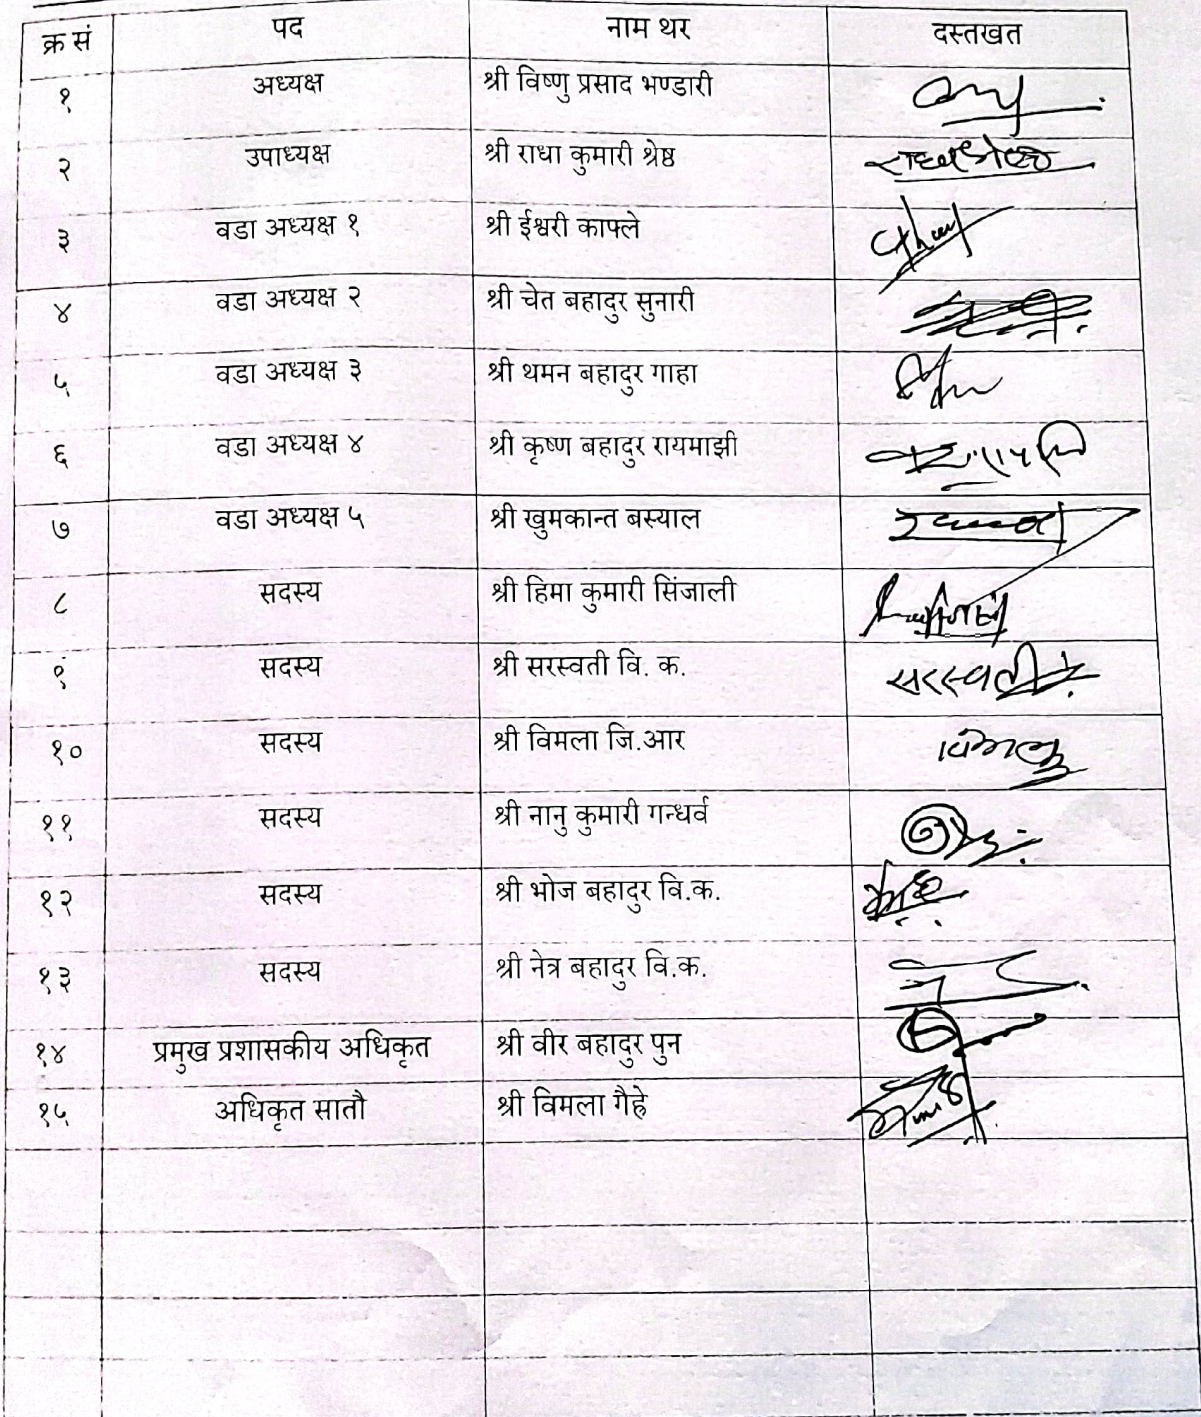 क्र सं पद नाम थर दस्तखत
१ अध्यक्ष श्री विष्णु प्रसाद भण्डारी
२ उपाध्यक्ष श्री राधा कुमारी श्रेष्ठ
३ वडा अध्यक्ष १ श्री ईश्वरी काफ्ले
४ वडा अध्यक्ष २ श्री चेत बहादुर सुनारी
५ वडा अध्यक्ष ३ श्री थमन बहादुर गाहा
६ वडा अध्यक्ष ४ श्री कृष्ण बहादुर रायमाझी
७ वडा अध्यक्ष ५ श्री खुमकान्त बस्याल
८ सदस्य श्री हिमा कुमारी सिंजाली
९ सदस्य श्री सरस्वती वि. क. सरस्वती
१० सदस्य श्री विमला जि.आर
११ सदस्य श्री नानु कुमारी गन्धर्व
१२ सदस्य श्री भोज बहादुर वि.क.
१३ सदस्य श्री नेत्र बहादुर वि.क.
१४ प्रमुख प्रशासकीय अधिकृत श्री वीर बहादुर पुन
१५ अधिकृत सातौ श्री विमला गैह्रे